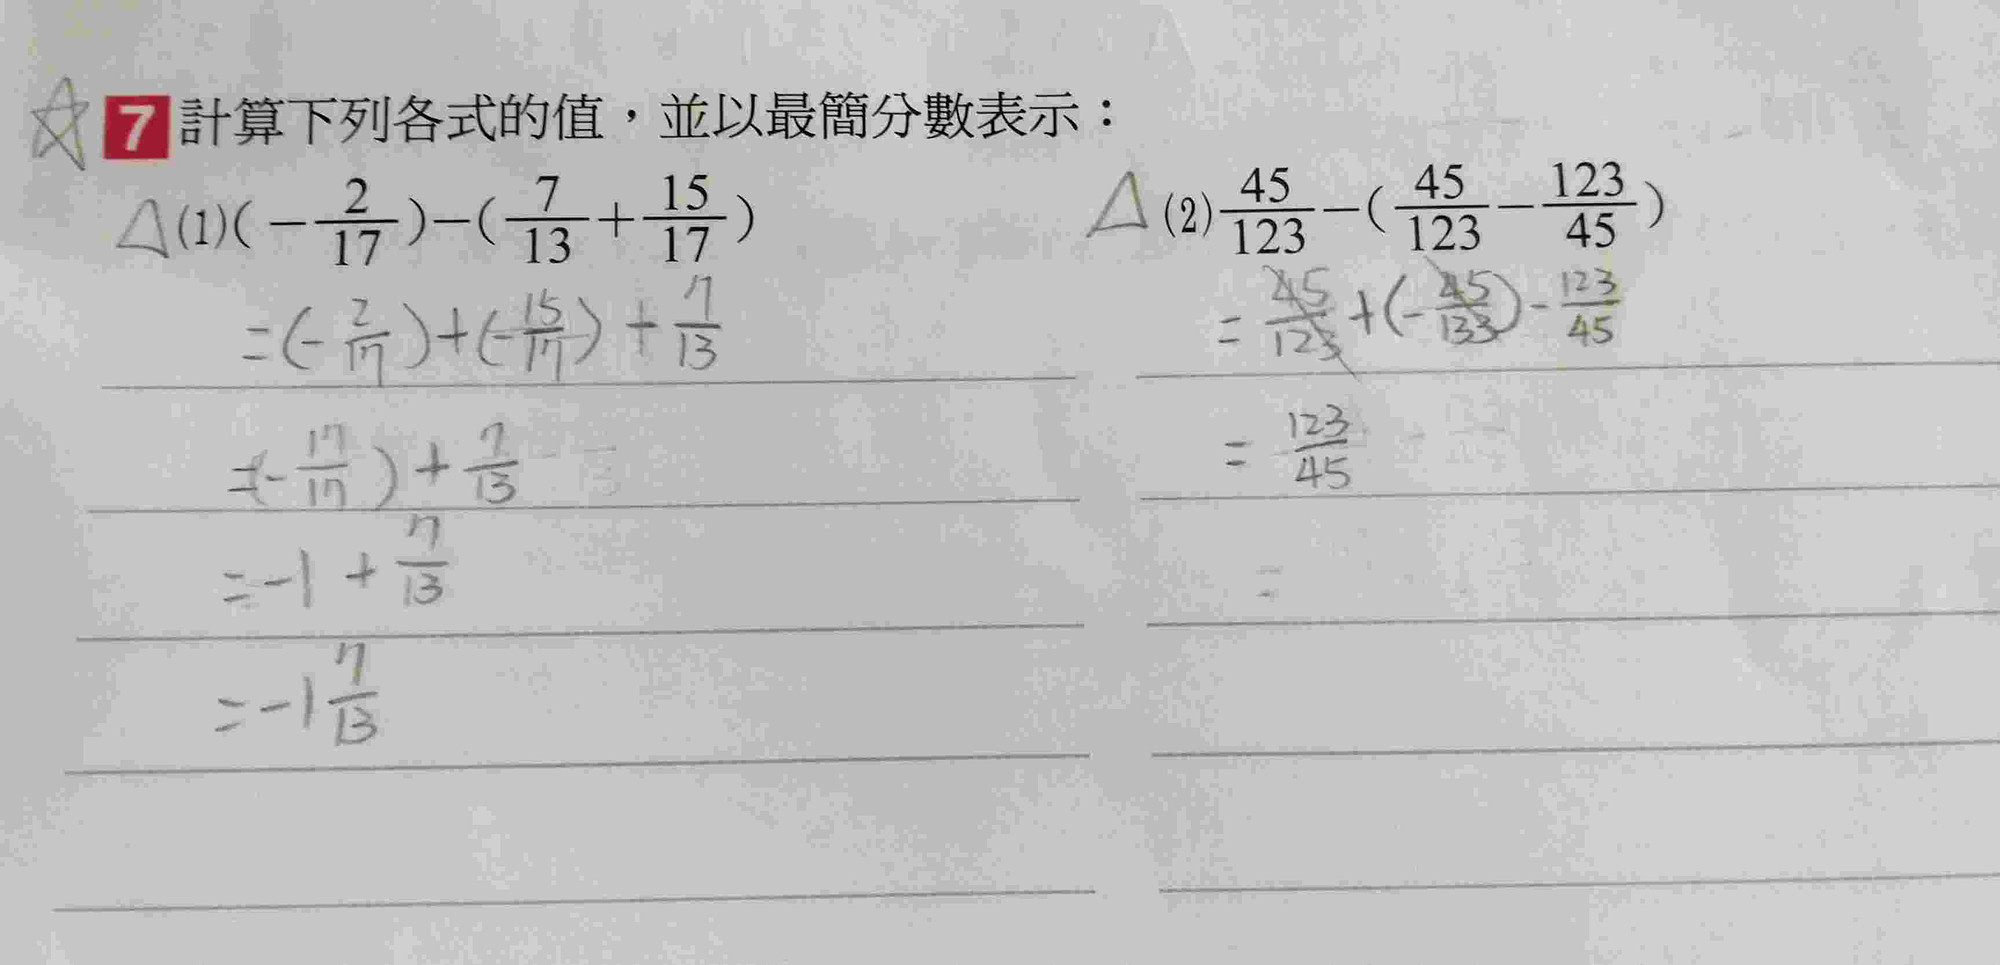 7 計算下列各式的值,並以最簡分數表示:
(1)(-2/17)-(7/13+15/17)
=(-2/17)+(-15/17)+7/13
=(-17/17)+7/13
=-1+7/13
=-1 7/13
(2)45/123-(45/123-123/45)
=45/123+(-45/133)-123/45
=123/45
=